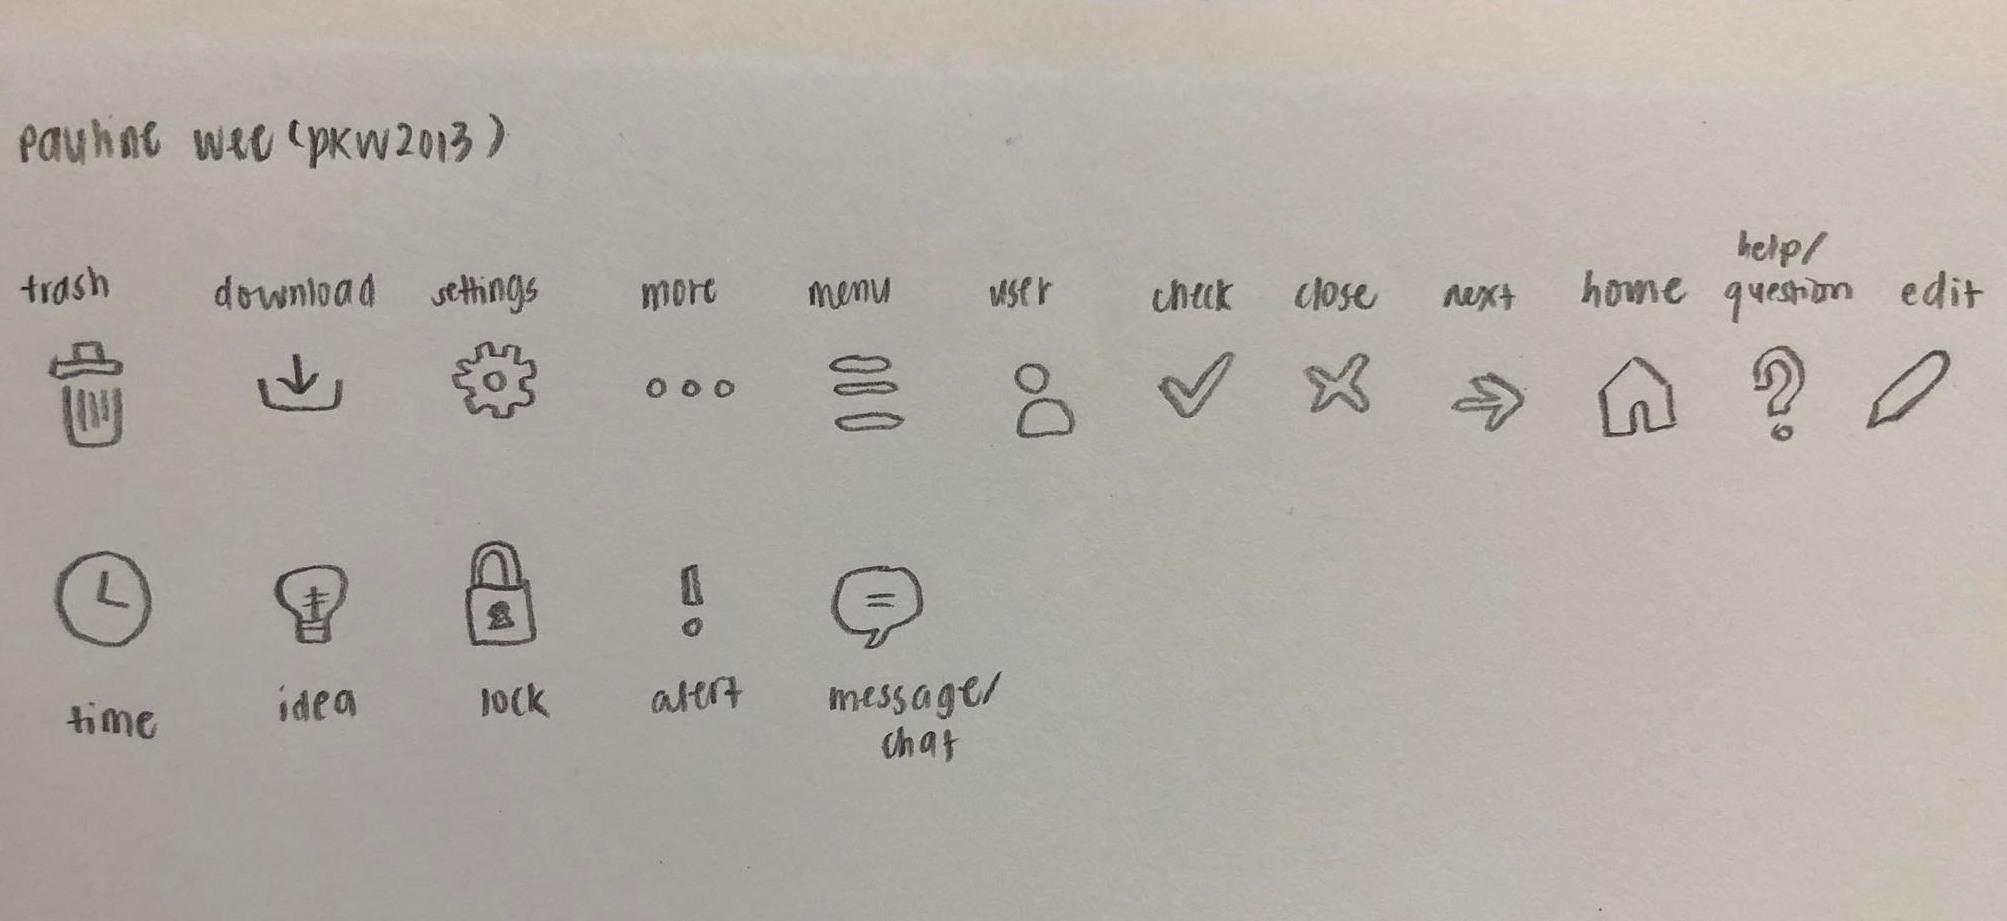 pauline wee (pkw2013)
trash download settings more menu user check close next home help/ question edit
time idea lock alert message/
chat